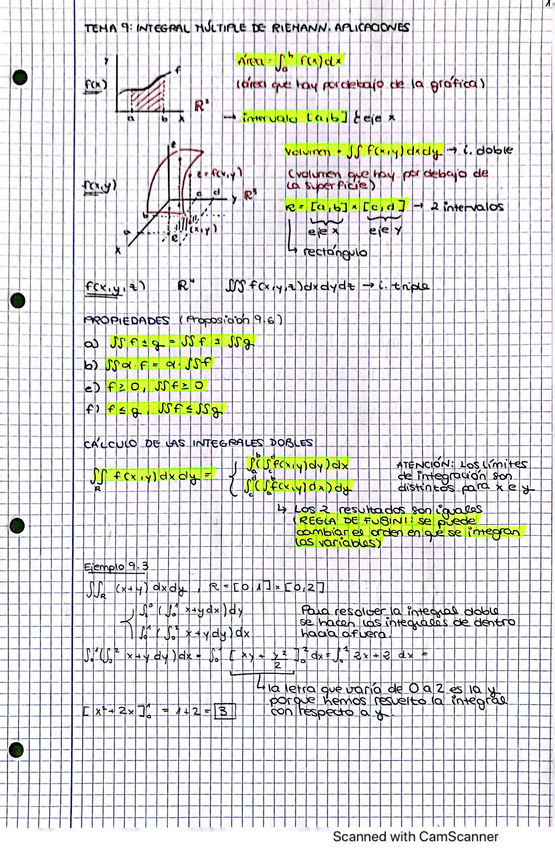 1.
TEMA 9: INTEGRAL MÚLTIPLE DE RIEMANN. APLICACIONES
f(x) y f a b x R²
Área = ∫ₐᵇ f(x)dx
(área que hay por debajo de la gráfica)
→ intervalo [a,b] eje x
f(x,y) z z=f(x,y) c d y R³ b a x R (x,y)
Volumen = ∬ f(x,y)dxdy → i. doble
(volumen que hay por debajo de
la superficie)
R = [a,b] × [c,d] → 2 intervalos
eje x eje y
↳ rectángulo
f(x,y,z) R⁴ ∭ f(x,y,z)dxdydz → i. triple
PROPIEDADES (Proposición 9.6)
a) ∬ f ± g = ∬ f ± ∬ g
b) ∬ α·f = α·∬ f
e) f ≥ 0, ∬ f ≥ 0
f) f ≤ g, ∬ f ≤ ∬ g
CÁLCULO DE LAS INTEGRALES DOBLES
∬_R f(x,y)dxdy = { ∫ₐᵇ(∫_c^d f(x,y)dy)dx
∫_c^d(∫ₐᵇ f(x,y)dx)dy
ATENCIÓN: Los límites
de integración son
distintos para x e y
↳ Los 2 resultados son iguales
(REGLA DE FUBINI: se puede
cambiar el orden en que se integran
las variables)
Ejemplo 9.3
∬_R (x+y)dxdy, R = [0,1]×[0,2]
{ ∫₀²(∫₀¹ x+y dx)dy
∫₀¹(∫₀² x+y dy)dx
Para resolver la integral doble
se hacen las integrales de dentro
hacia afuera.
∫₀¹(∫₀² x+y dy)dx = ∫₀¹ [xy + y²/2]₀² dx = ∫₀¹ 2x+2 dx =
↳ la letra que varía de 0 a 2 es la y
porque hemos resuelto la integral
con respecto a y.
[x²+2x]₀¹ = 1+2 = 3
Scanned with CamScanner